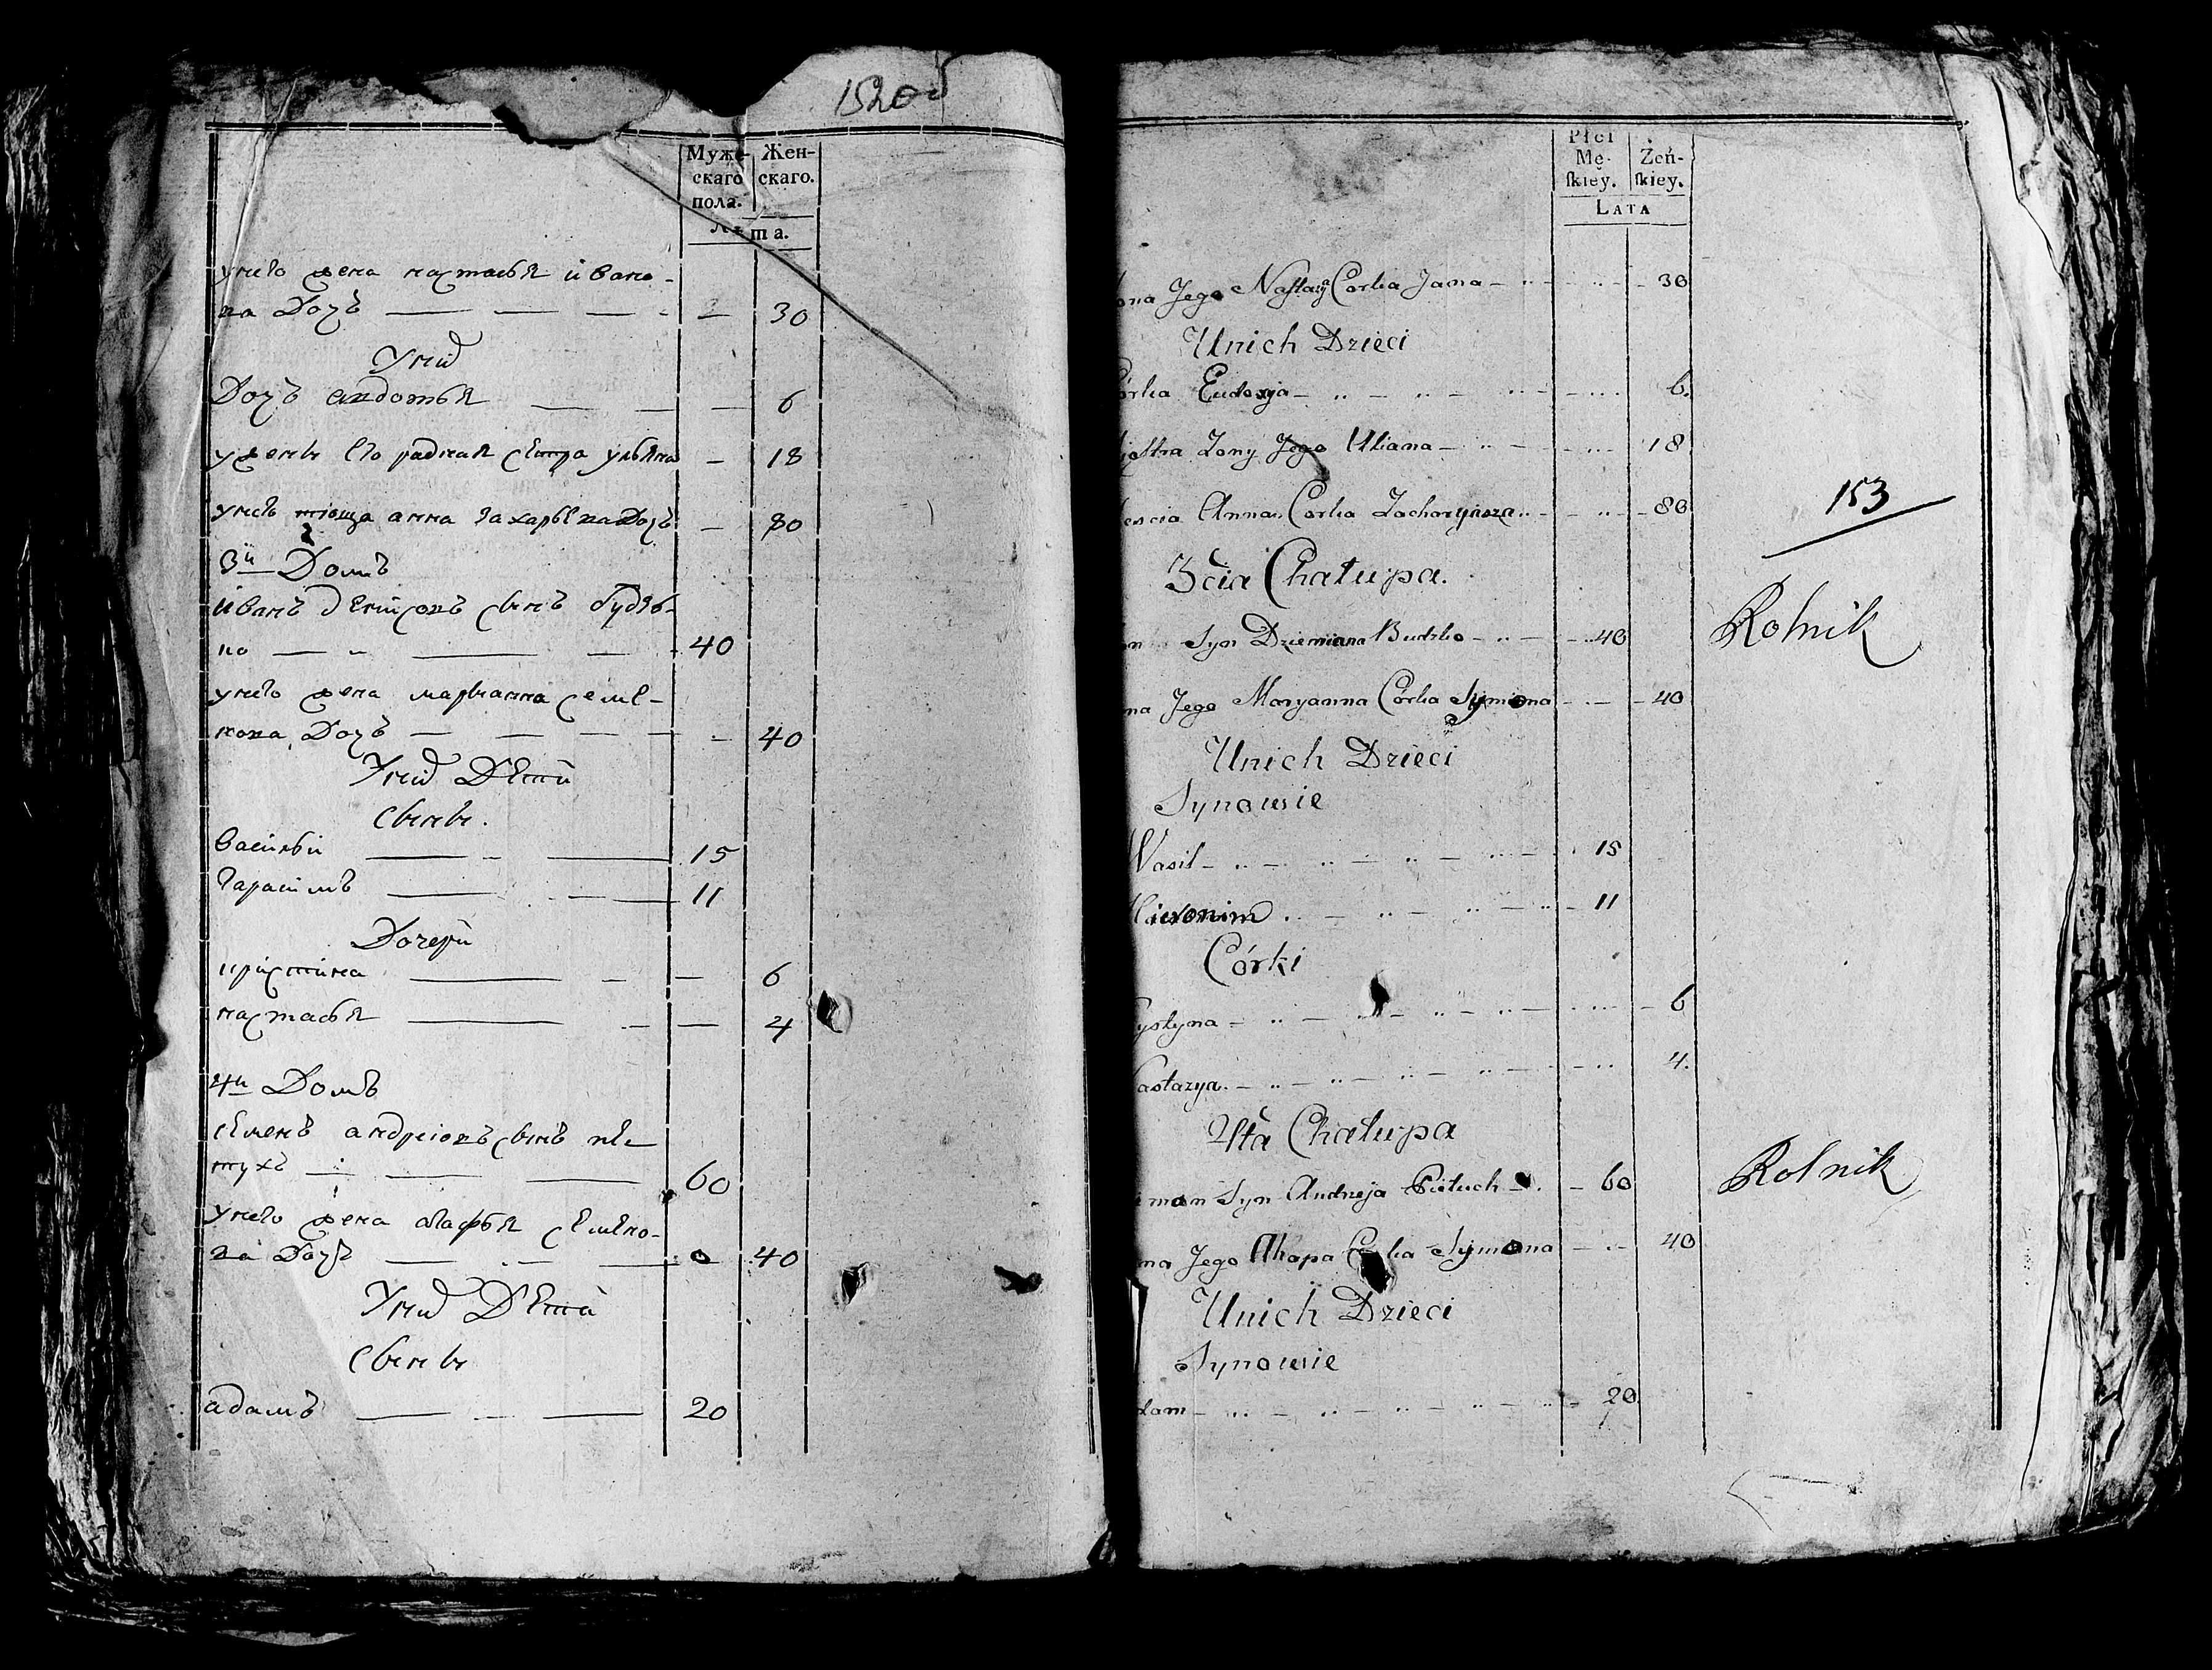 152об
Муже- Жен-
скаго скаго.
пола.
та.
унего жена настасья ивано-
ва Дочь 30
Уних
Дочь авдотья 6
ужены его радная сестра ульяна 18
унего тіоща анна захарьева Дочь 80
3й Домъ
иванъ демисовъ сынъ будзь-
ко 40
унего жена марьянна семе-
нова Дочь 40
Уних Дети
сыны.
васильи 15
гарасимъ 11
Дочери
кристина 6
настасья 4
4й Домъ
семенъ андреіовъ сынъ пе-
тухъ 60
унего жена агафья семено-
ва Дочь 0 40
Уних Дети
сыны
адамъ 20
Płci
Mę- Żeń-
ſkiey. ſkiey.
LATA
ona Jego Nastazya Corka Jana 30
Unich Dzieci
órka Eudoxya 6.
iostra Zony Jego Uliana 18
escia Anna Corka Zacharyasza 80
153
3cia Chałupa.
n Syn Dziemiana Budzko 40
Rolnik
na Jego Maryanna Córka Symona 40
Unich Dzieci
Synowie
Wasil 15
Hieronim 11
Córki
ystyna 6
astazya. 4.
4ta Chałupa
mon Syn Andrzeja Pietuch 60
Rolnik
na Jego Ahapa Corka Symona 40
Unich Dzieci
Synowie
dam 20